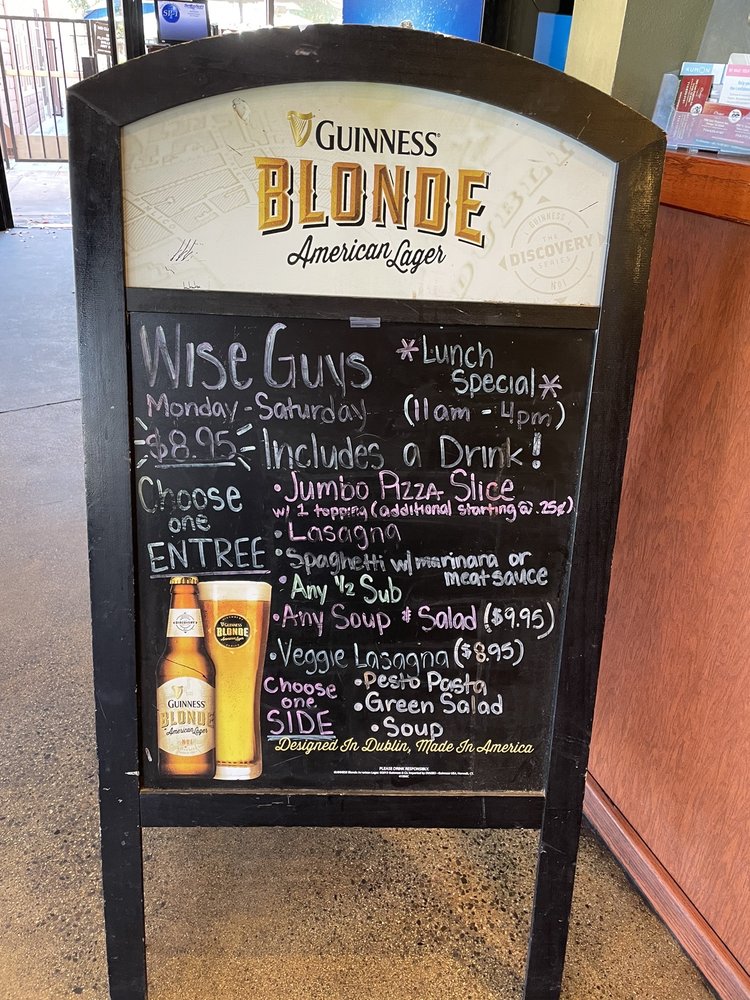 GUINNESS
BLONDE
American Lager
GUINNESS
THE
DISCOVERY
SERIES
Nº1
Wise Guys *Lunch Special*
Monday-Saturday (11am - 4pm)
$8.95 Includes a Drink!
Choose one ENTREE
• Jumbo Pizza Slice
w/ 1 topping (additional starting @ .25¢)
• Lasagna
• Spaghetti w/ marinara or
meat sauce
• Any 1/2 Sub
• Any Soup & Salad ($9.95)
• Veggie Lasagna ($8.95)
Choose one SIDE
• Pesto Pasta
• Green Salad
• Soup
GUINNESS
BLONDE
American Lager
GUINNESS
BLONDE
American Lager
Designed In Dublin, Made In America
PLEASE DRINK RESPONSIBLY.
KUMON